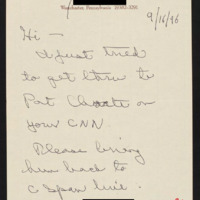 9/16/96
Hi —
I just tried
to get thru to
Pat Choate on
your CNN.
Please bring
him back to
C Span live.